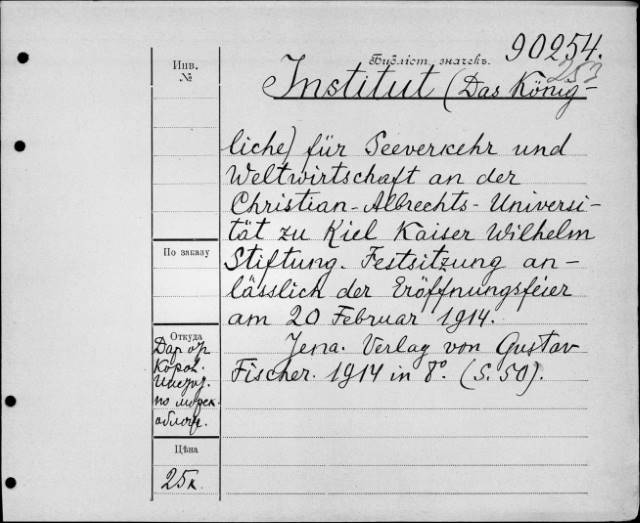 90254.
Инв.
№
Библіот. значекъ.
253
Institut (Das König-
liche) für Seeverkehr und
Weltwirtschaft an der
Christian-Albrechts-Universi-
tät zu Kiel Kaiser Wilhelm
Stiftung. Festsitzung an-
lässlich der Eröffnungsfeier
am 20 Februar 1914.
Jena. Verlag von Gustav
Fischer. 1914 in 8º. (S. 50).
По заказу
Откуда
Дар от
Корол.
по морск.
Цѣна
25к.